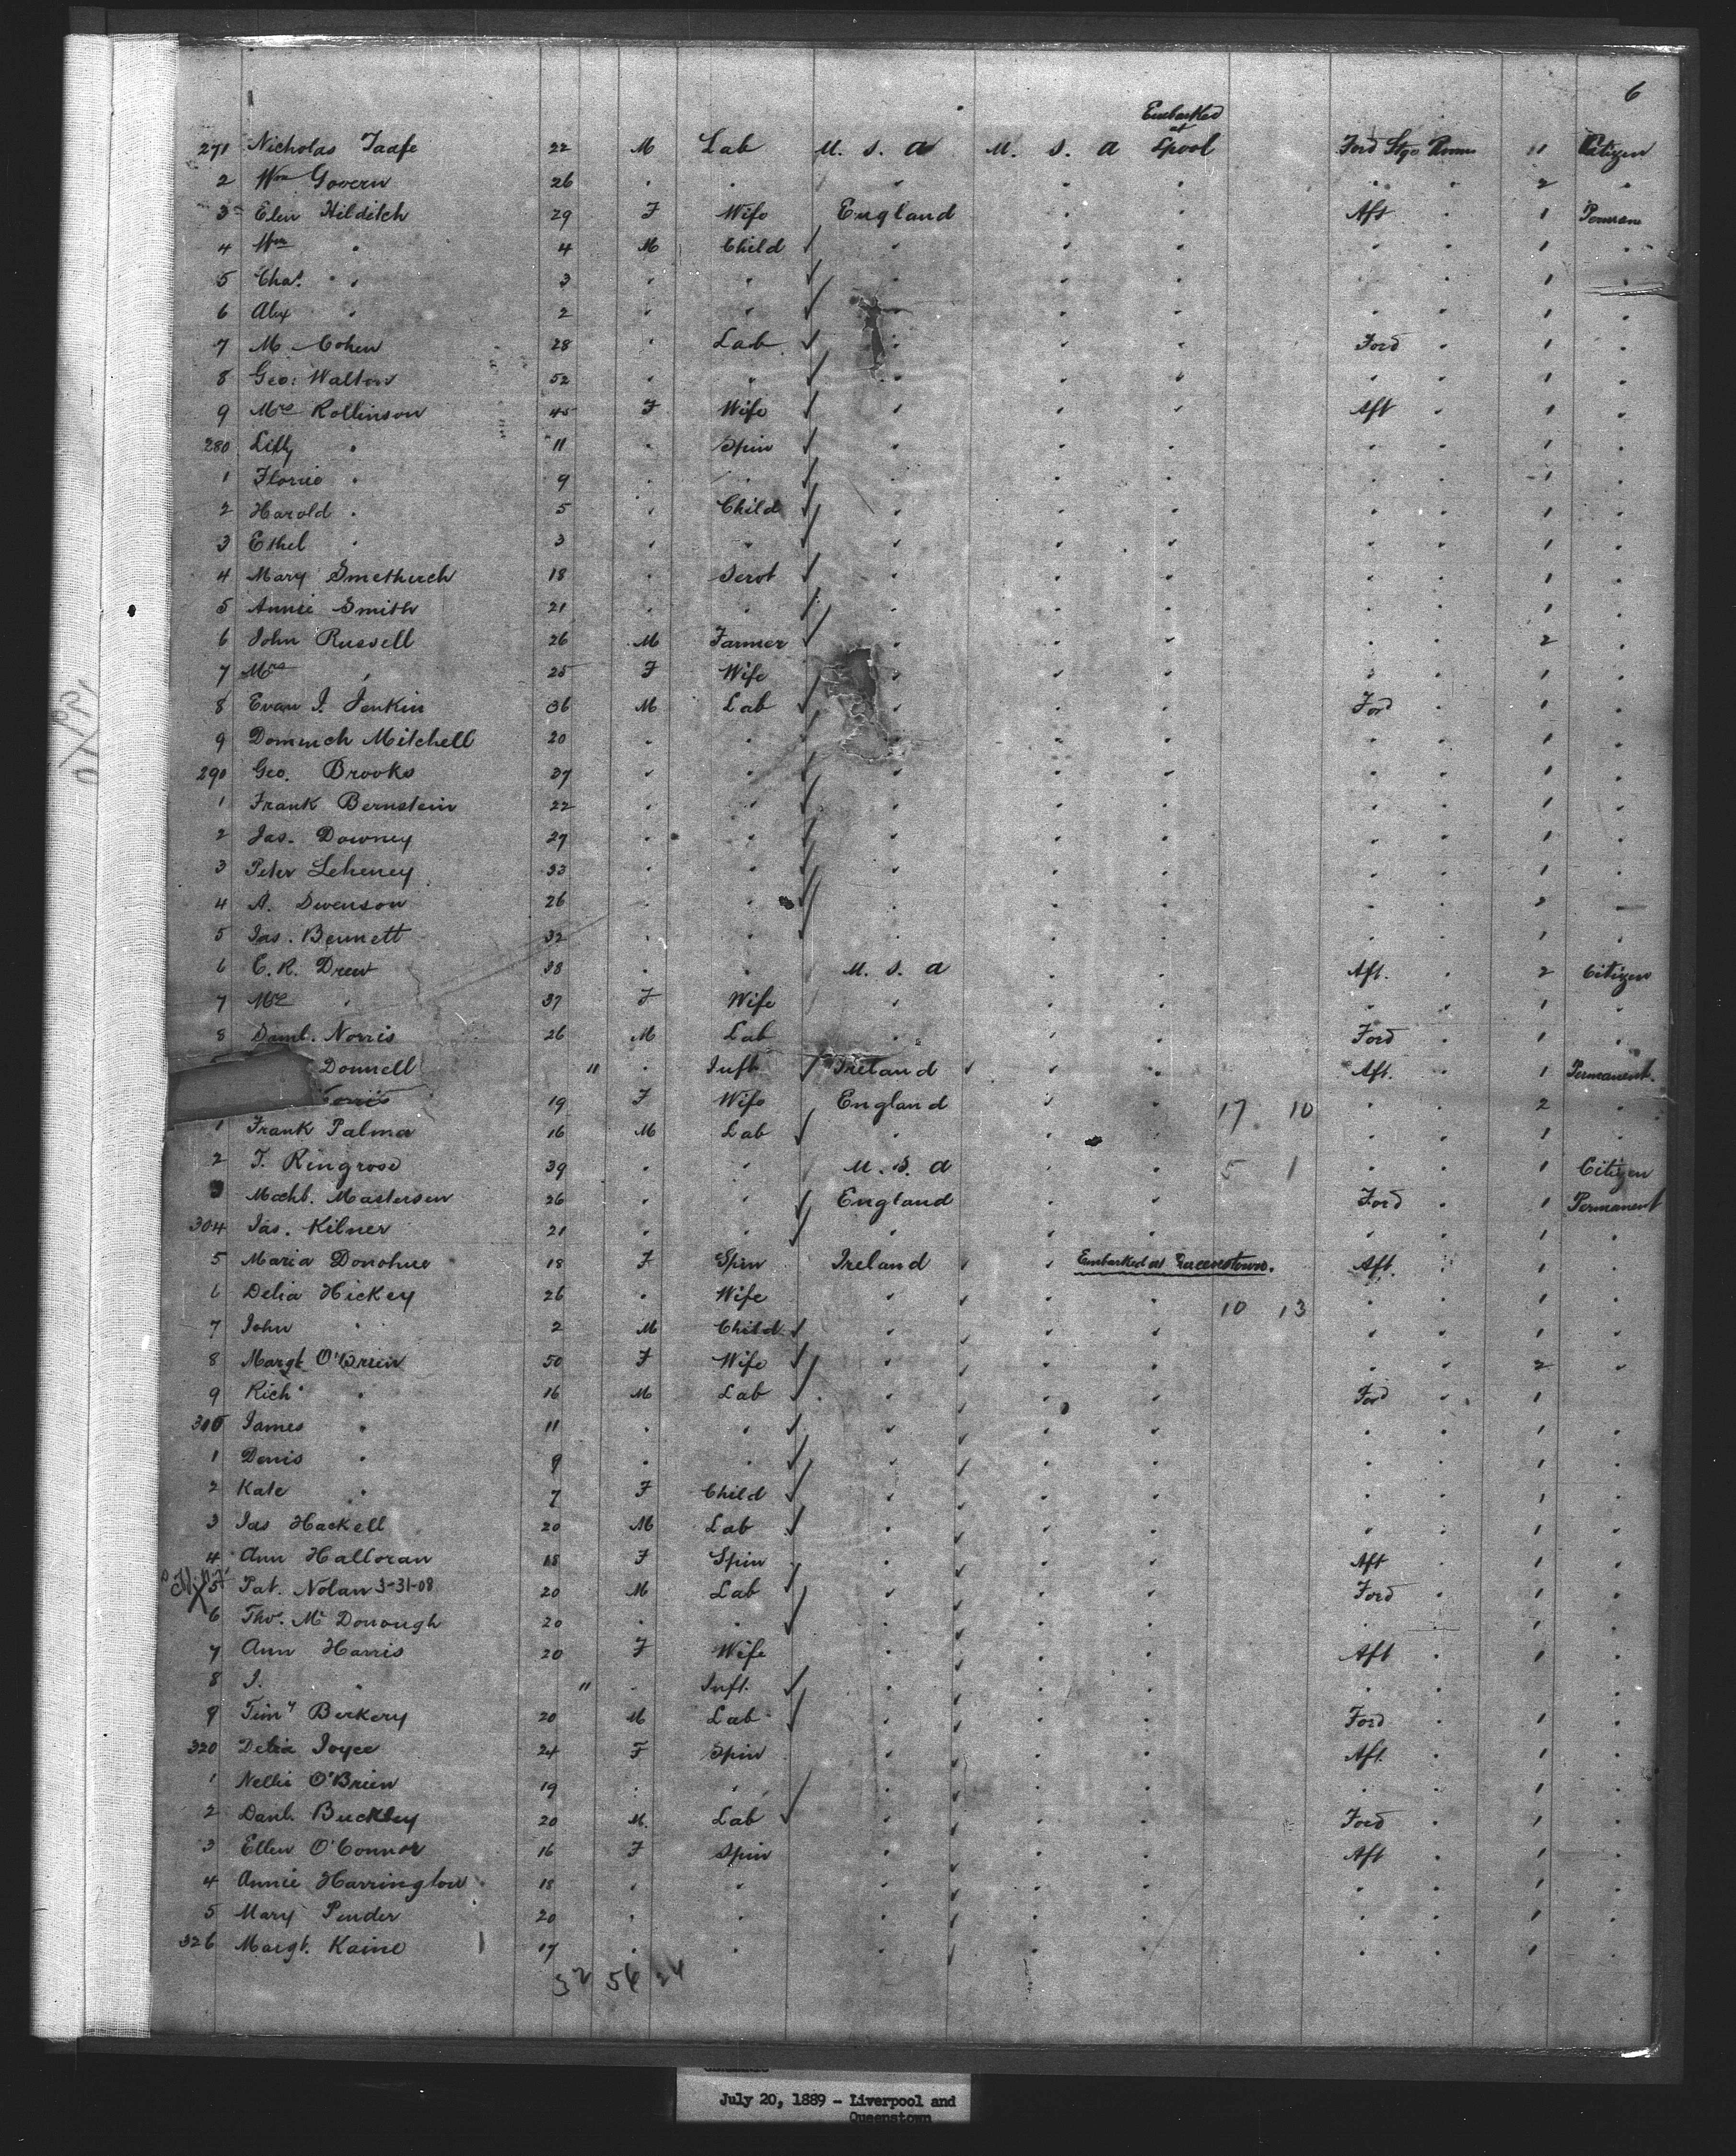 6
Embarked
at
271 Nicholas Taafe 22 M Lab U. S. A U. S. A Lpool Ford Stge Room 11 Citizen
2 Wm Govern 26 " " " " " " " " 2 "
3 Elen Hilditch 29 F Wife England " " Aft " 1
4 Wm " 4 M Child " " " " " 1 "
5 Chas. " 3 " " " " " " " 1 "
6 Alex " 2 " " " " " " " 1 "
7 M Cohen 28 " Lab " " " Ford " 1 "
8 Geo: Walton 52 " " " " " " " 1 "
9 Mrs Rollinson 45 F Wife " " " Aft " 1 "
280 Lilly " 11 " Spin " " " " " 1 "
1 Florrie " 9 " " " " " " " 1 "
2 Harold " 5 " Child " " " " " 1 "
3 Ethel " 3 " " " " " " " 1 "
4 Mary 18 " Servt " " " " " 1 "
5 Annie Smith 21 " " " " " " " 1 "
6 John Russell 26 M Farmer " " " " " 2 "
7 Mrs " 25 F Wife " " " " " 1 "
8 Evan J. Jenkin 36 M Lab " " " Ford " 1 "
9 Mitchell 20 " " " " " " " 1 "
290 Geo. Brooks 37 " " " " " " " 1 "
1 Frank Bernstein 22 " " " " " " " 1 "
2 Jas. Downey 27 " " " " " " " 1 "
3 Peter Leheney 33 " " " " " " " 1 "
4 A. Swenson 26 " " " " " " " 2
5 Jas. Bennett 32 " " " " " " " 1 "
6 E. R. Drew 38 " " U. S. A " " Aft. " 2 Citizen
7 Mrs " 37 F Wife " " " " " 1 "
8 Danl. Norris 26 M Lab " " " Ford " 1 "
Donnell 11 " Inft Ireland " " Aft. " 1 Permanent.
19 F Wife England " " 17 10 " " 2 "
1 Frank Palmer 16 M Lab " " " " " 1 "
2 T. Ringrose 39 " " U. S. A " " 5 1 " " 1 Citizen
3 Masterson 26 " " England " " Ford " 1 Permanent
304 Jas. Kilner 21 " " " " " " " 1 "
5 Maria Donohue 18 F Spin Ireland " Embarked at Queenstown. Aft. " 1 "
6 Delia Hickey 26 " Wife " " " 10 13 " " 1 "
7 John " 2 M Child " " " " " 1 "
8 Margt. O'Brien 50 F Wife " " " " " 2 "
9 Richd " 16 M Lab " " " Ford " 1 "
310 James " 11 " " " " " " " 1 "
1 Denis " 9 " " " " " " " 1 "
2 Kate " 7 F Child " " " " " 1 "
3 Jas Hackell 20 M Lab " " " " " 1 "
4 Ann Halloran 18 F Spin " " " Aft " 1 "
5 Pat. Nolan 3-31-08 20 M Lab " " " Ford " 1 "
6 Thos. Mc Donough 20 " " " " " " " 1 "
7 Ann Harris 20 F Wife " " " Aft " 1 "
8 J. " 11 " Inft. " " " " " "
9 Timy Berkery 20 M Lab " " " Ford " 1 "
320 Delia Joyce 24 F Spin " " " Aft. " 1 "
1 Nellie O'Brien 19 " " " " " " " 1 "
2 Danl. Buckley 20 M. Lab " " " Ford " 1 "
3 Ellen O'Connor 16 F Spin " " " Aft " 1 "
4 Annie Harrington 18 " " " " " " " 1 "
5 Mary Pender 20 " " " " " " " 1 "
326 Margt. Kaine 17 " " " " " " " 1 "
32 56 24
July 20, 1889 - Liverpool and
Queenstown